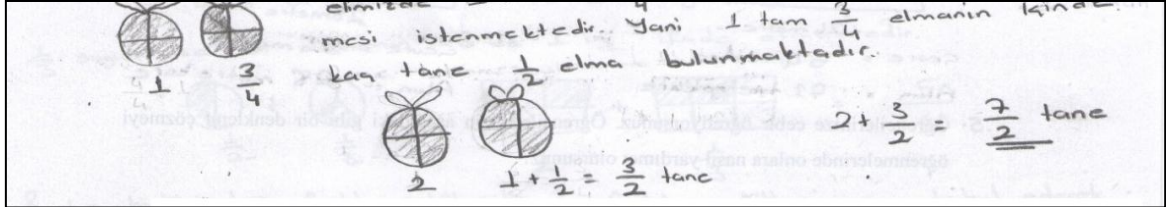 elimizde
mesi istenmektedir. Yani 1 tam 3/4 elmanın içinde
kaç tane 1/2 elma bulunmaktadır.
1 3/4
2 + 3/2 7/2 tane
2 1 + 1/2 = 3/2 tane